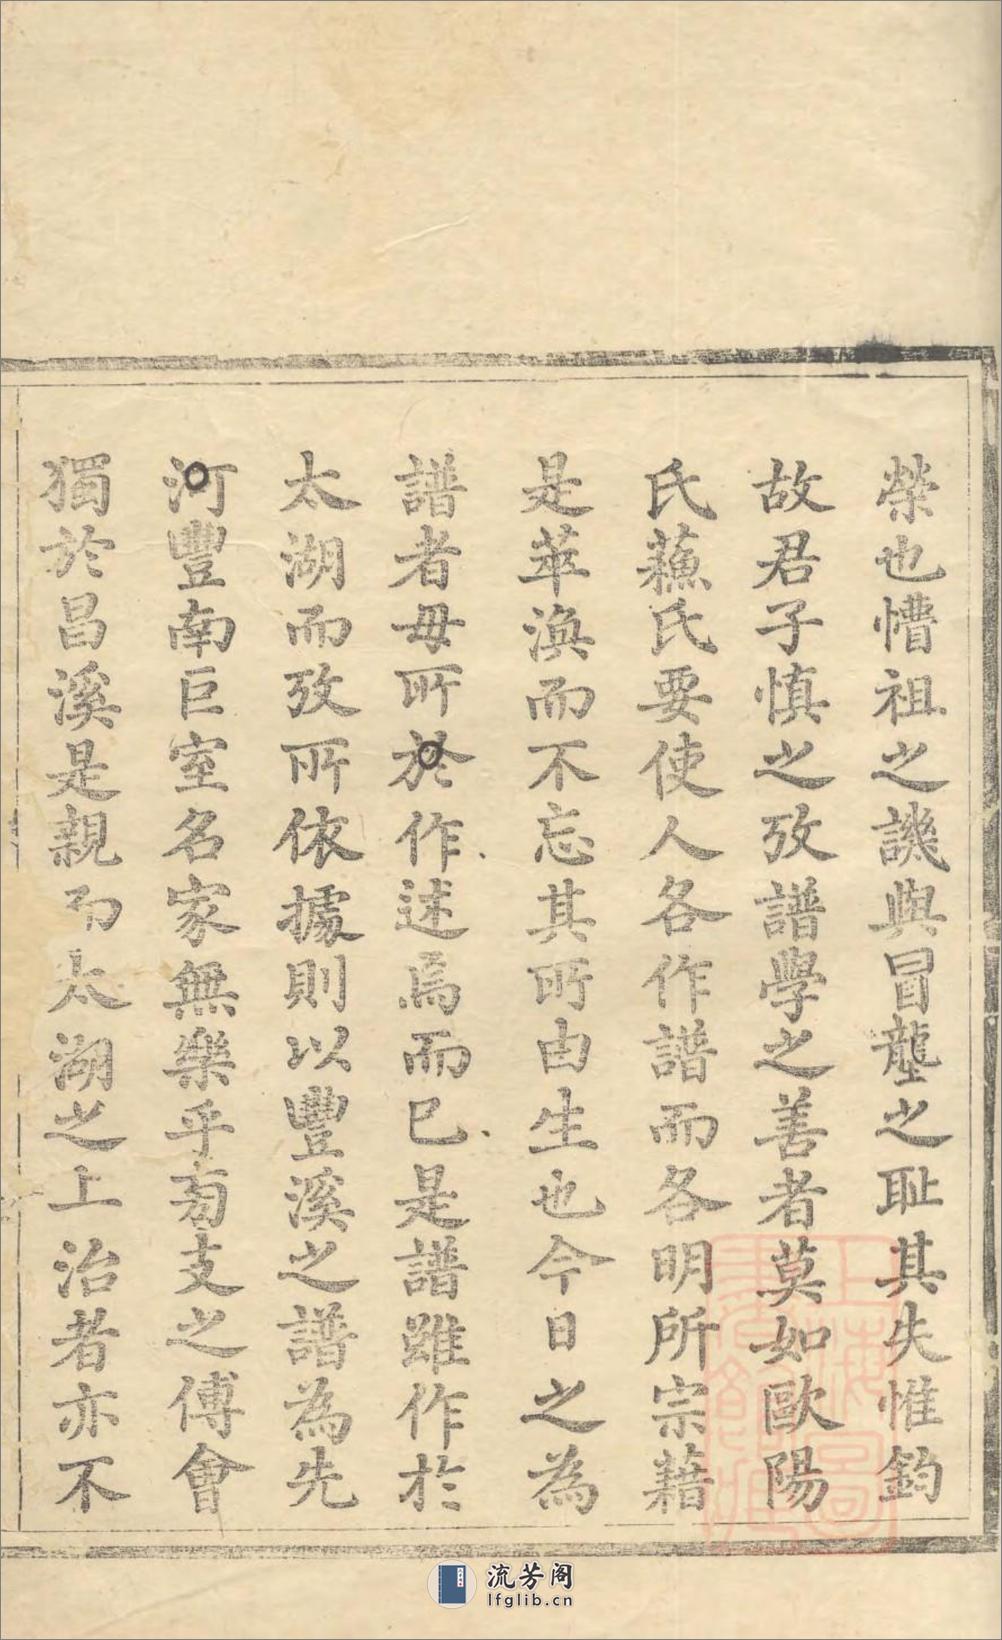 榮也懵祖之譏與冒壟之耻其失惟鈞
故君子慎之攷譜學之善者莫如歐陽
氏蘓氏要使人各作譜而各明所宗藉
是萃渙而不忘其所由生也今日之為
譜者毋所於作述焉而已是譜雖作於
太湖而攷所依據則以豐溪之譜為先
河豐南巨室名家無樂乎㫄支之傅會
獨於昌溪是親而太湖之上治者亦不
上海圖書館藏
流芳阁
lfglib.cn